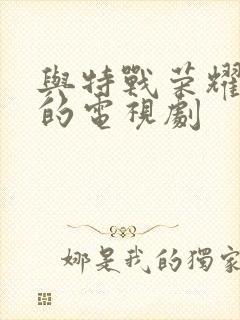 與特戰榮耀
的電視劇
娜是我的獨家